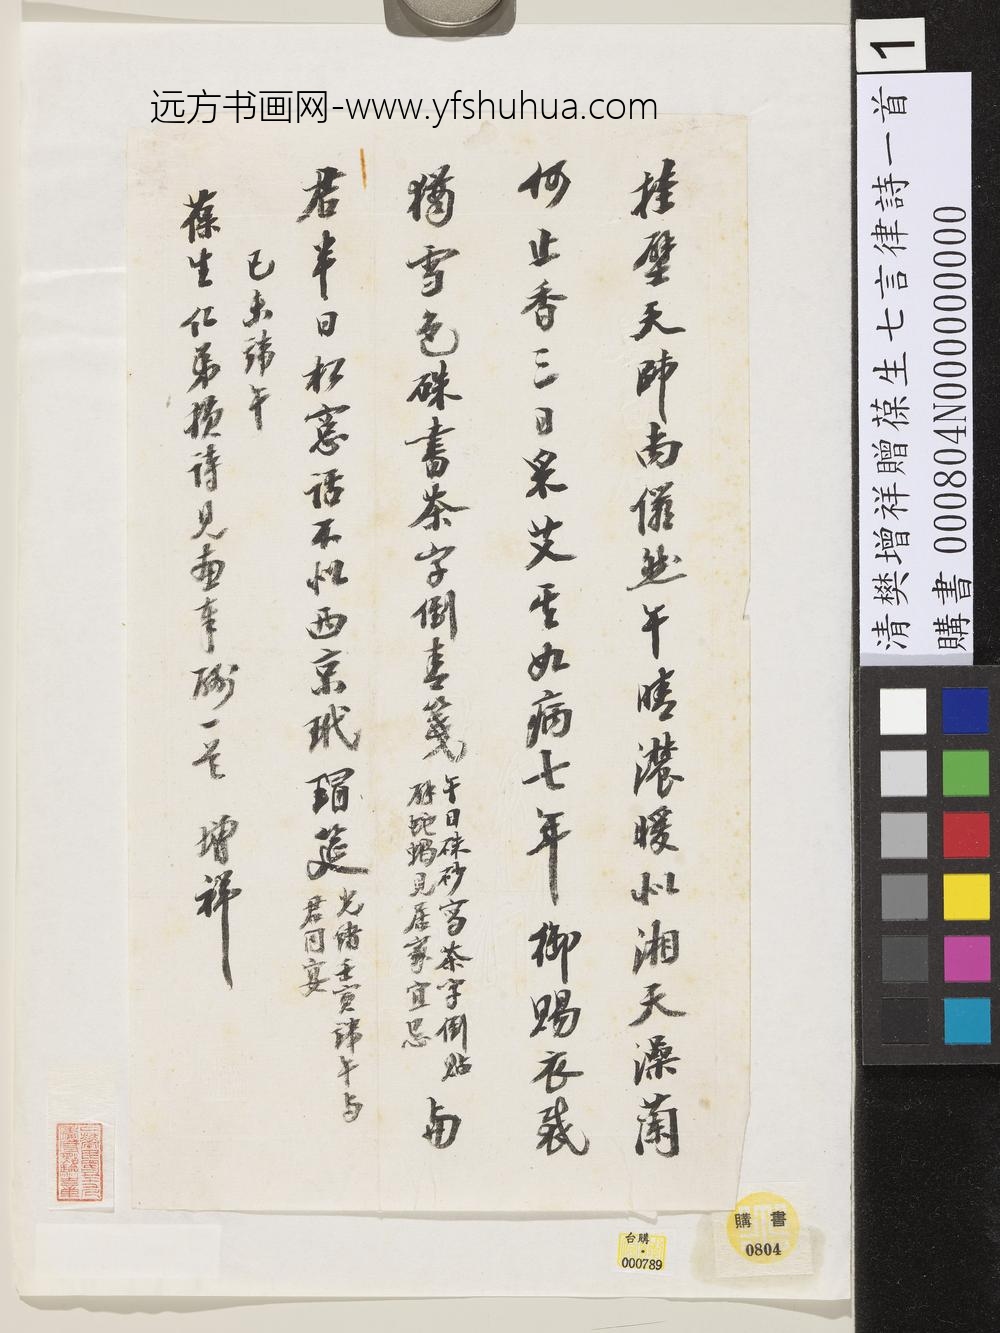 远方书画网-www.yfshuhua.com
挂壁天師尚儼然午晴濃暖似湘天澡蘭
何止香三日采艾真如病七年御賜衣裁
猶雪色硃書茶字倒書箋
午日硃砂寫茶字倒貼
辟蛇蝎見居家宜忌
与
君半日松窗話不似西京玳瑁筵
光緒壬寅諦午与
君同宴
己未諦午
葆生仁弟 詩見 一笑 增祥
1
清樊增祥贈葆生七言律詩一首
購書 000804N000000000
購書
0804
台購
000789